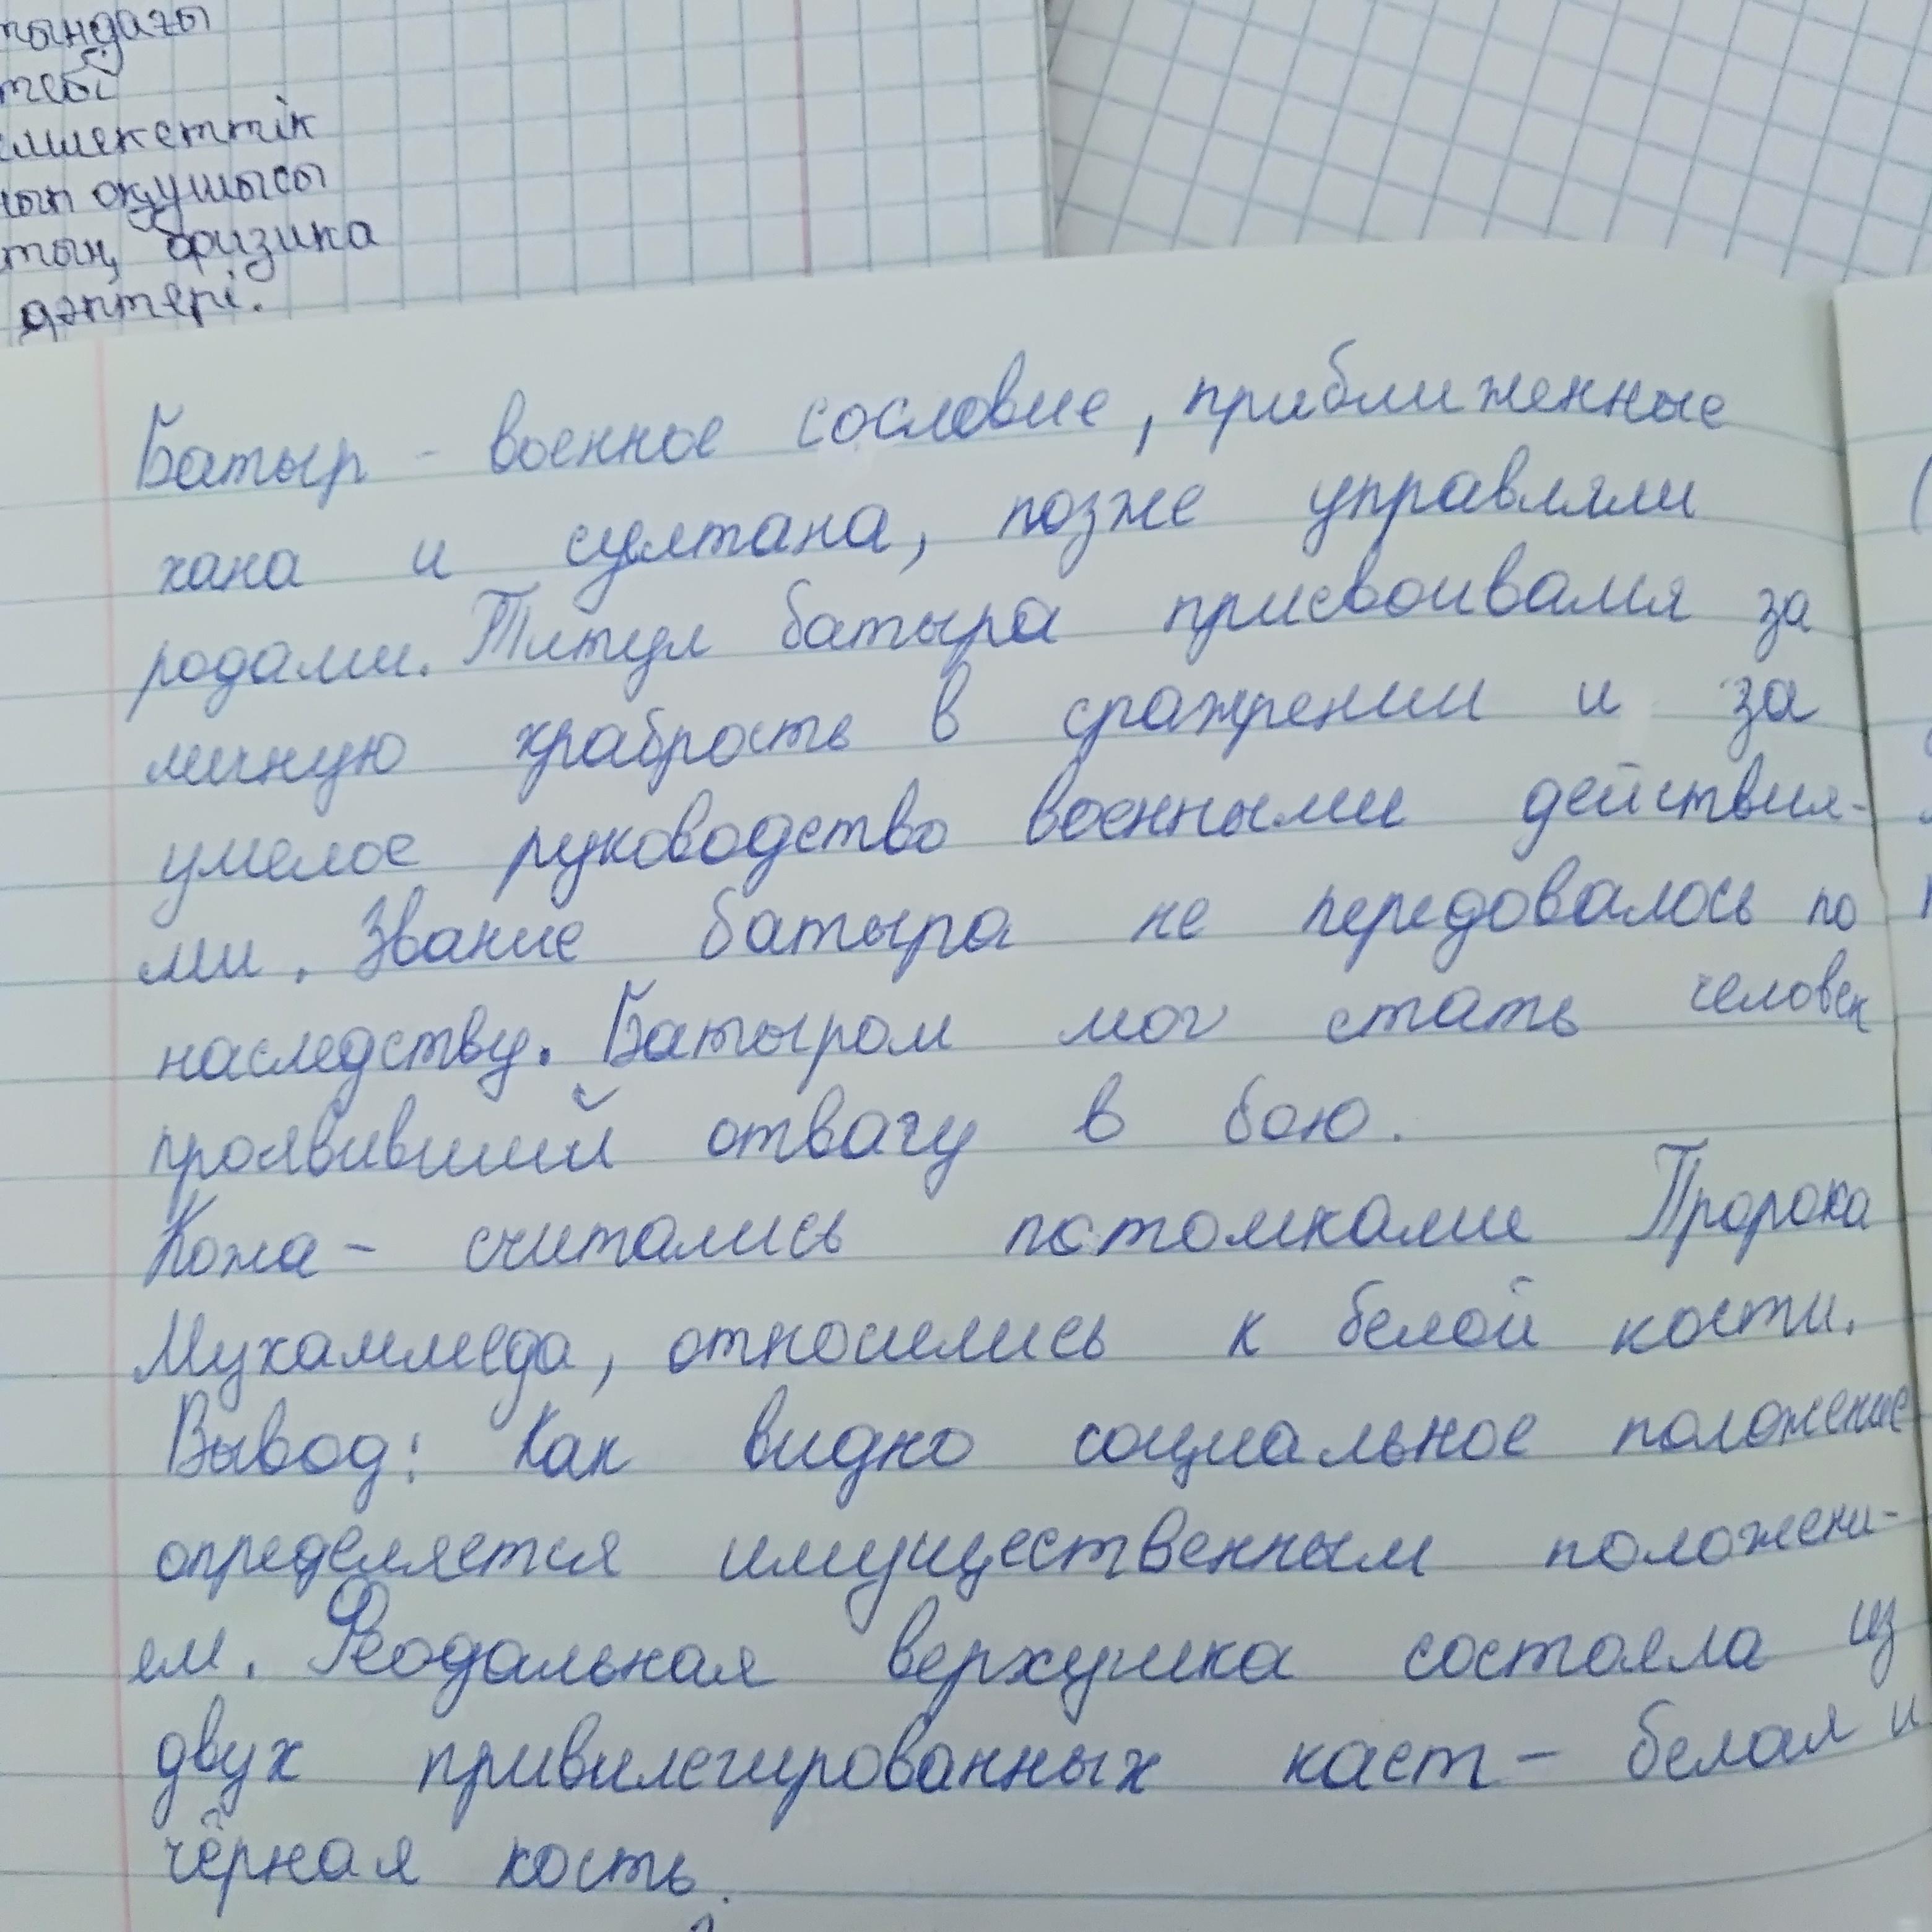 тындағы
тебі
млекеттік
нып оқушысы
тың физика
дәптері.
Батыр - военное сословие, приближенные
хана и султана, позже управляли
родами. Титул батыра присвоивался за
личную храбрость в сражении и за
умелое руководство военными действия-
ми. Звание батыра не передовалось по
наследству. Батыром мог стать человек
проявивший отвагу в бою.
Кожа - считались потомками Пророка
Мухаммеда, относились к белой кости.
Вывод: Как видно социальное положение
определяется имущественным положени-
ем. Феодальная верхушка состояла из
двух привилегированных каст - белая и
чёрная кость.